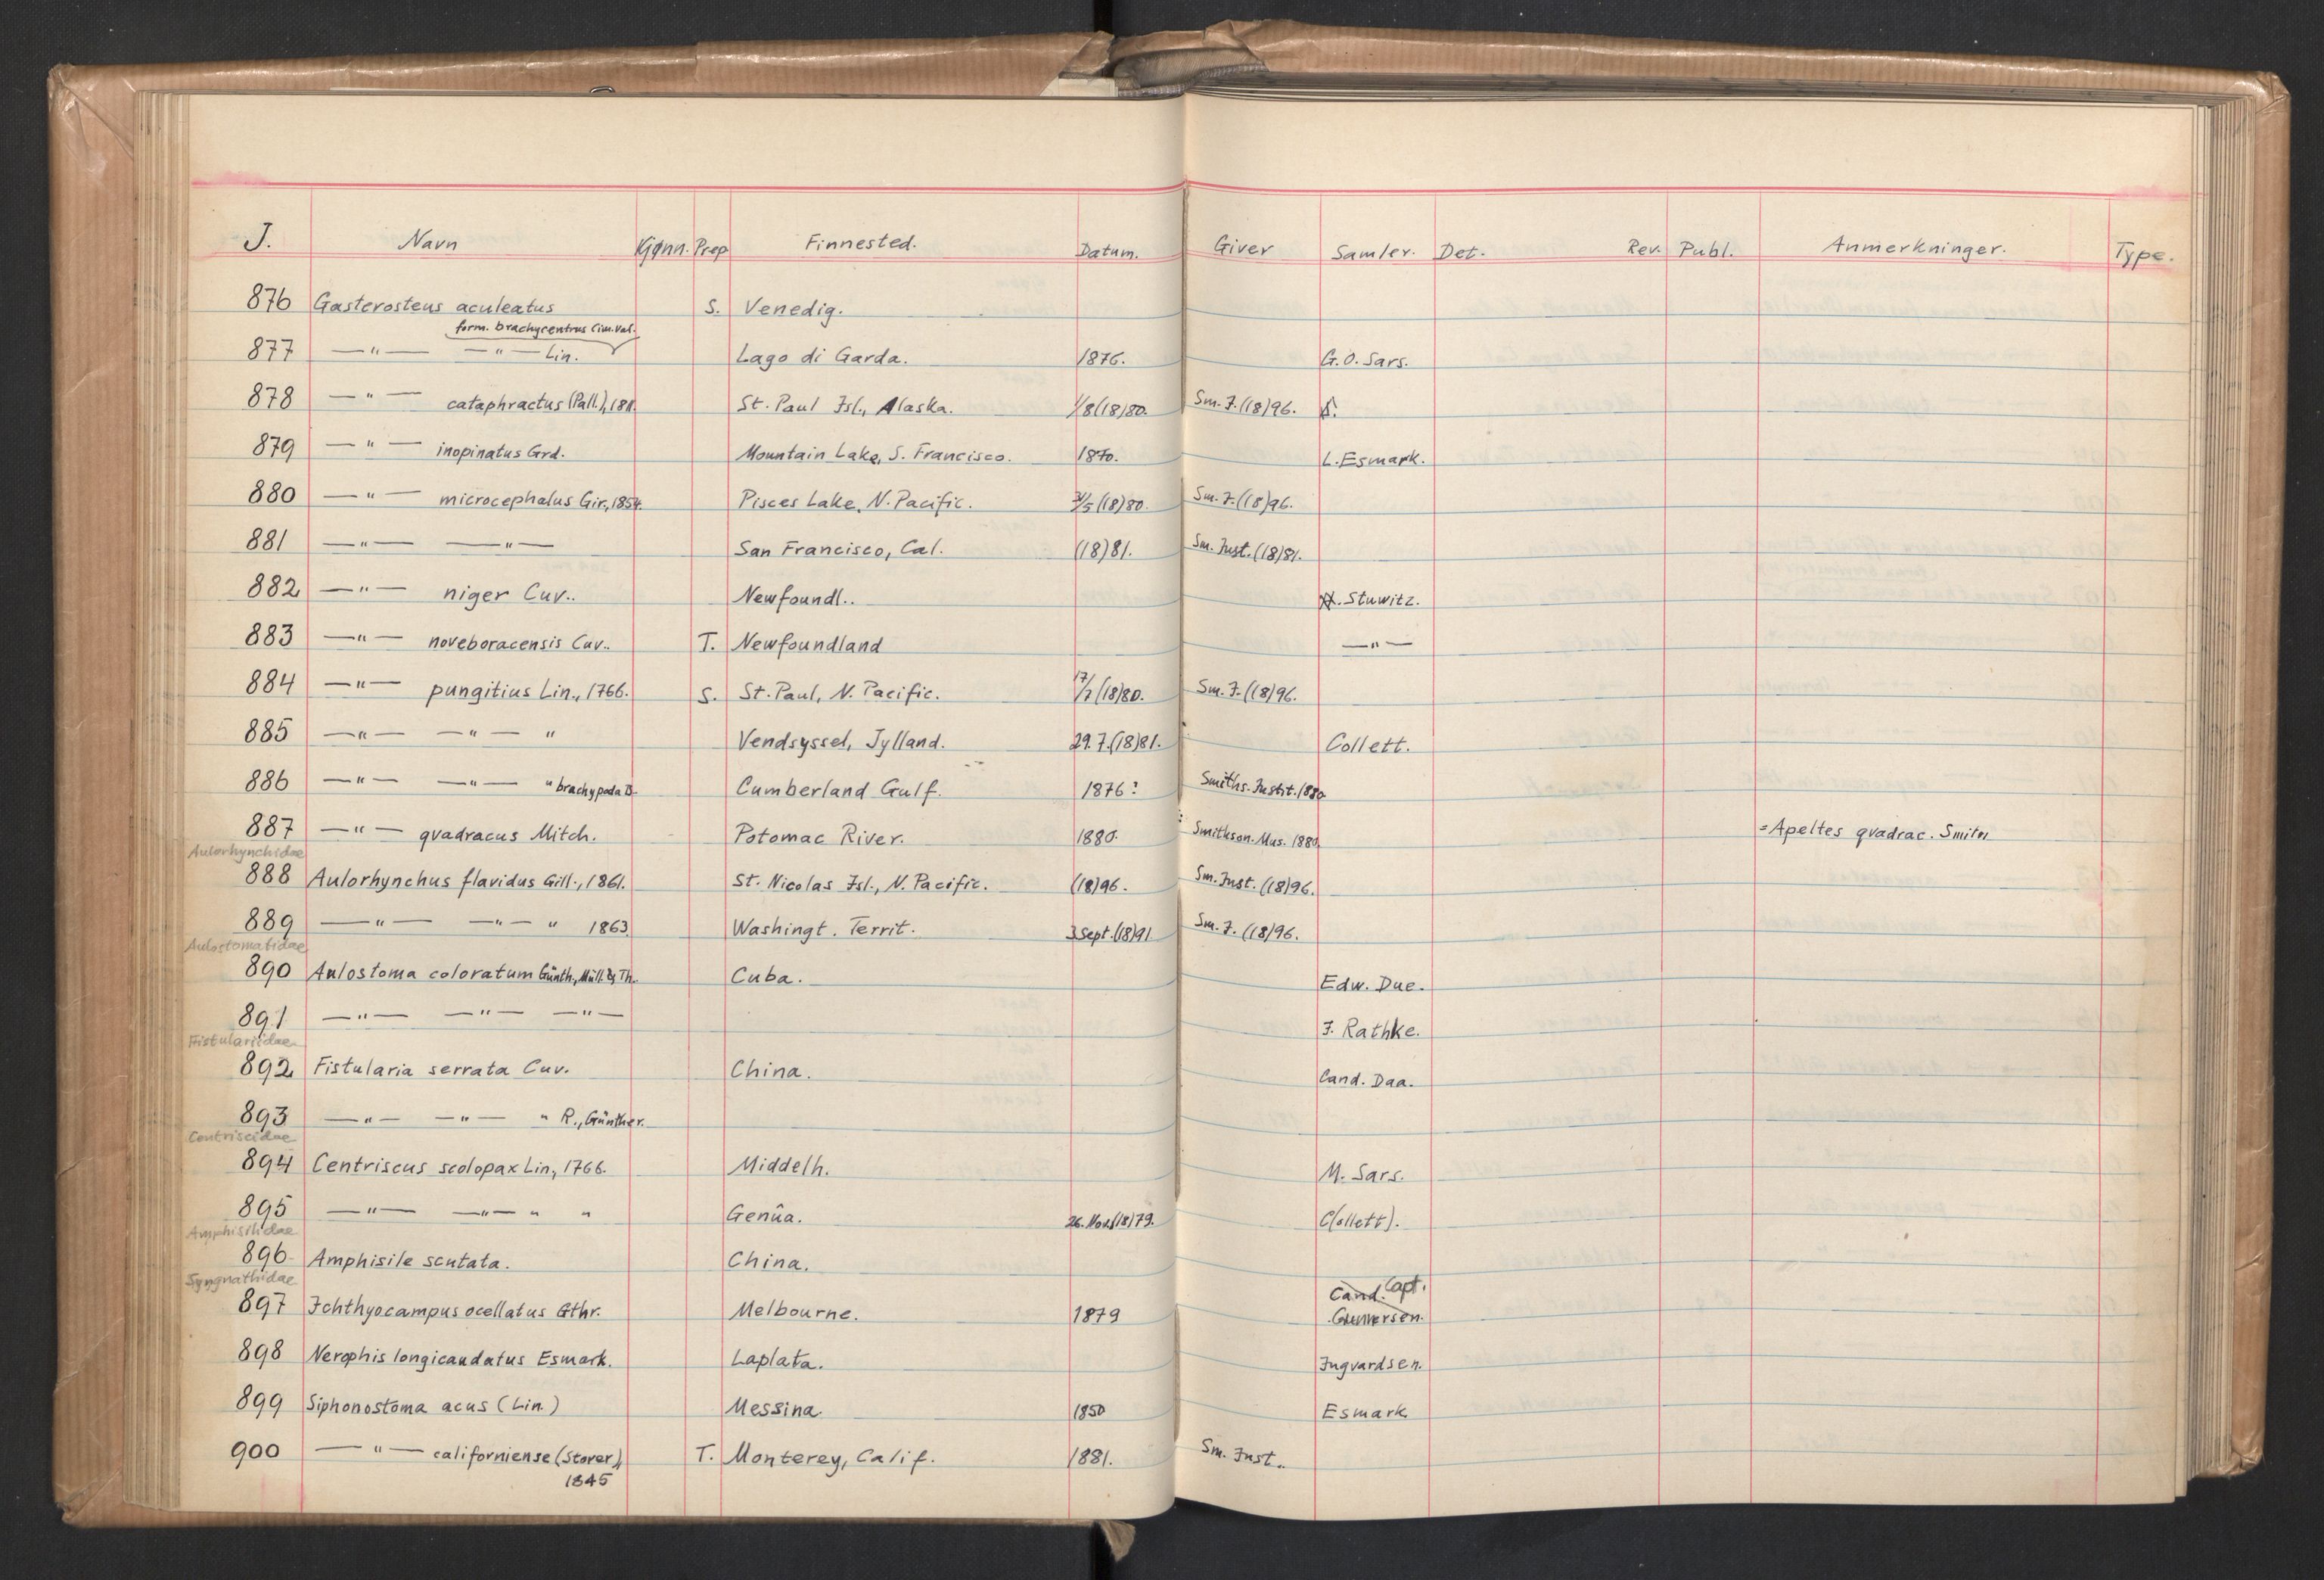 J. Navn Kjønn. Prep Finnested. Datum. Giver Samler. Det. Rev. Publ. Anmerkninger. Type.
876 Gasterosteus aculeatus S. Venedig.
form. brachycentrus Cuv. Val.
877 —"— —"— Lin. Lago di Garda. 1876. G. O. Sars.
878 —"— cataphractus (Pall.), 1811. St. Paul Isl., Alaska. 1/8 (18)80. Sm. I. (18)96.
879 —"— inopinatus Grd. Mountain Lake, S. Francisco. 1870. L. Esmark.
880 —"— microcephalus Gir., 1854. Pisces Lake, N. Pacific. /5 (18)80. Sm. I. (18)96.
881 —"— —"— San Francisco, Cal. (18)81. Sm. Inst. (18)81.
882 —"— niger Cuv.. Newfoundl.. Stuwitz.
883 —"— noveboracensis Cuv.. T. Newfoundland —"—
884 —"— pungitius Lin., 1766. S. St. Paul, N. Pacific. 17/7 (18)80. Sm. I. (18)96.
885 —"— —"— " Vendsyssel, Jylland. 29. 7. (18)81. Collett.
886 —"— —"— " brachypoda B. Cumberland Gulf. 1876? Smiths. Instit. 1880
887 —"— qvadracus Mitch. Potomac River. 1880. Smithson. Mus. 1880. = Apeltes qvadrac.
Aulorhynchidae
888 Aulorhynchus flavidus Gill., 1861. St. Nicolas Isl., N. Pacific. (18)96. Sm. Inst. (18)96.
889 —"— —"— " 1863. Washingt. Territ. 3 Sept. (18)91 Sm. I. (18)96.
Aulostomatidae
890 Aulostoma coloratum Günth., Müll. & Th. Cuba. Edw. Due.
891 —"— —"— —"— J. Rathke.
Fistulariidae
892 Fistularia serrata Cuv. China. Cand. Daa.
893 —"— —"— " R., Günther.
Centriscidae
894 Centriscus scolopax Lin., 1766. Middelh. M. Sars.
895 —"— —"— " " Genûa. 26. Nov. (18)79. C(ollett).
Amphisilidae
896 Amphisile scutata. China.
Syngnathidae
Cand. Capt.
897 Ichthyocampus ocellatus Gthr. Melbourne. 1879
898 Nerophis longicaudatus Esmark. Laplata. Ingvardsen.
899 Siphonostoma acus (Lin.) Messina. 1850 Esmark
900 —"— californiense (Storer), T. Monterey, Calif. 1881. Sm. Inst..
1845